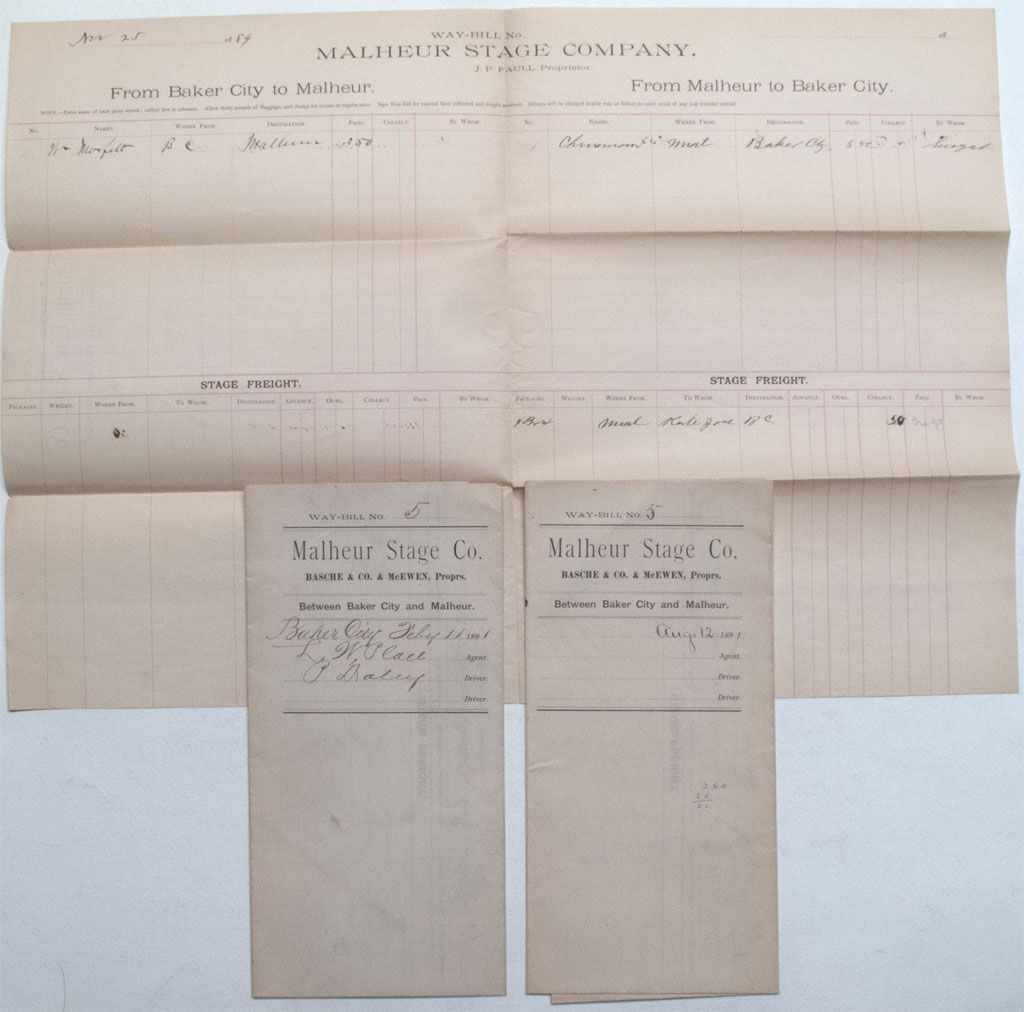 Nov 25 1889
WAY-BILL No.
18
MALHEUR STAGE COMPANY.
J. P. FAULL, Proprietor.
From Baker City to Malheur.
From Malheur to Baker City.
NOTE.—Enter name of each party
No. NAMES. WHERE FROM. DESTINATION. PAID. COLLECT. BY WHOM.
No. NAMES. WHERE FROM. DESTINATION. PAID. COLLECT. BY WHOM.
Wm B C Malheur 3.50
Chinaman Baker City
STAGE FREIGHT.
STAGE FREIGHT.
PACKAGES. WEIGHT. WHERE FROM. TO WHOM. DESTINATION. ADVANCE. OURS. COLLECT. PAID. BY WHOM.
PACKAGES. WEIGHT. WHERE FROM. TO WHOM. DESTINATION. ADVANCE. OURS. COLLECT. PAID. BY WHOM.
Box Kate B C
WAY-BILL No. 5
Malheur Stage Co.
BASCHE & CO. & McEWEN, Proprs.
Between Baker City and Malheur.
Baker City Feby 11 1891
L. W. Place Agent.
P Daley Driver.
Driver.
WAY-BILL No. 5
Malheur Stage Co.
BASCHE & CO. & McEWEN, Proprs.
Between Baker City and Malheur.
Aug. 12 1891
Agent.
Driver.
Driver.